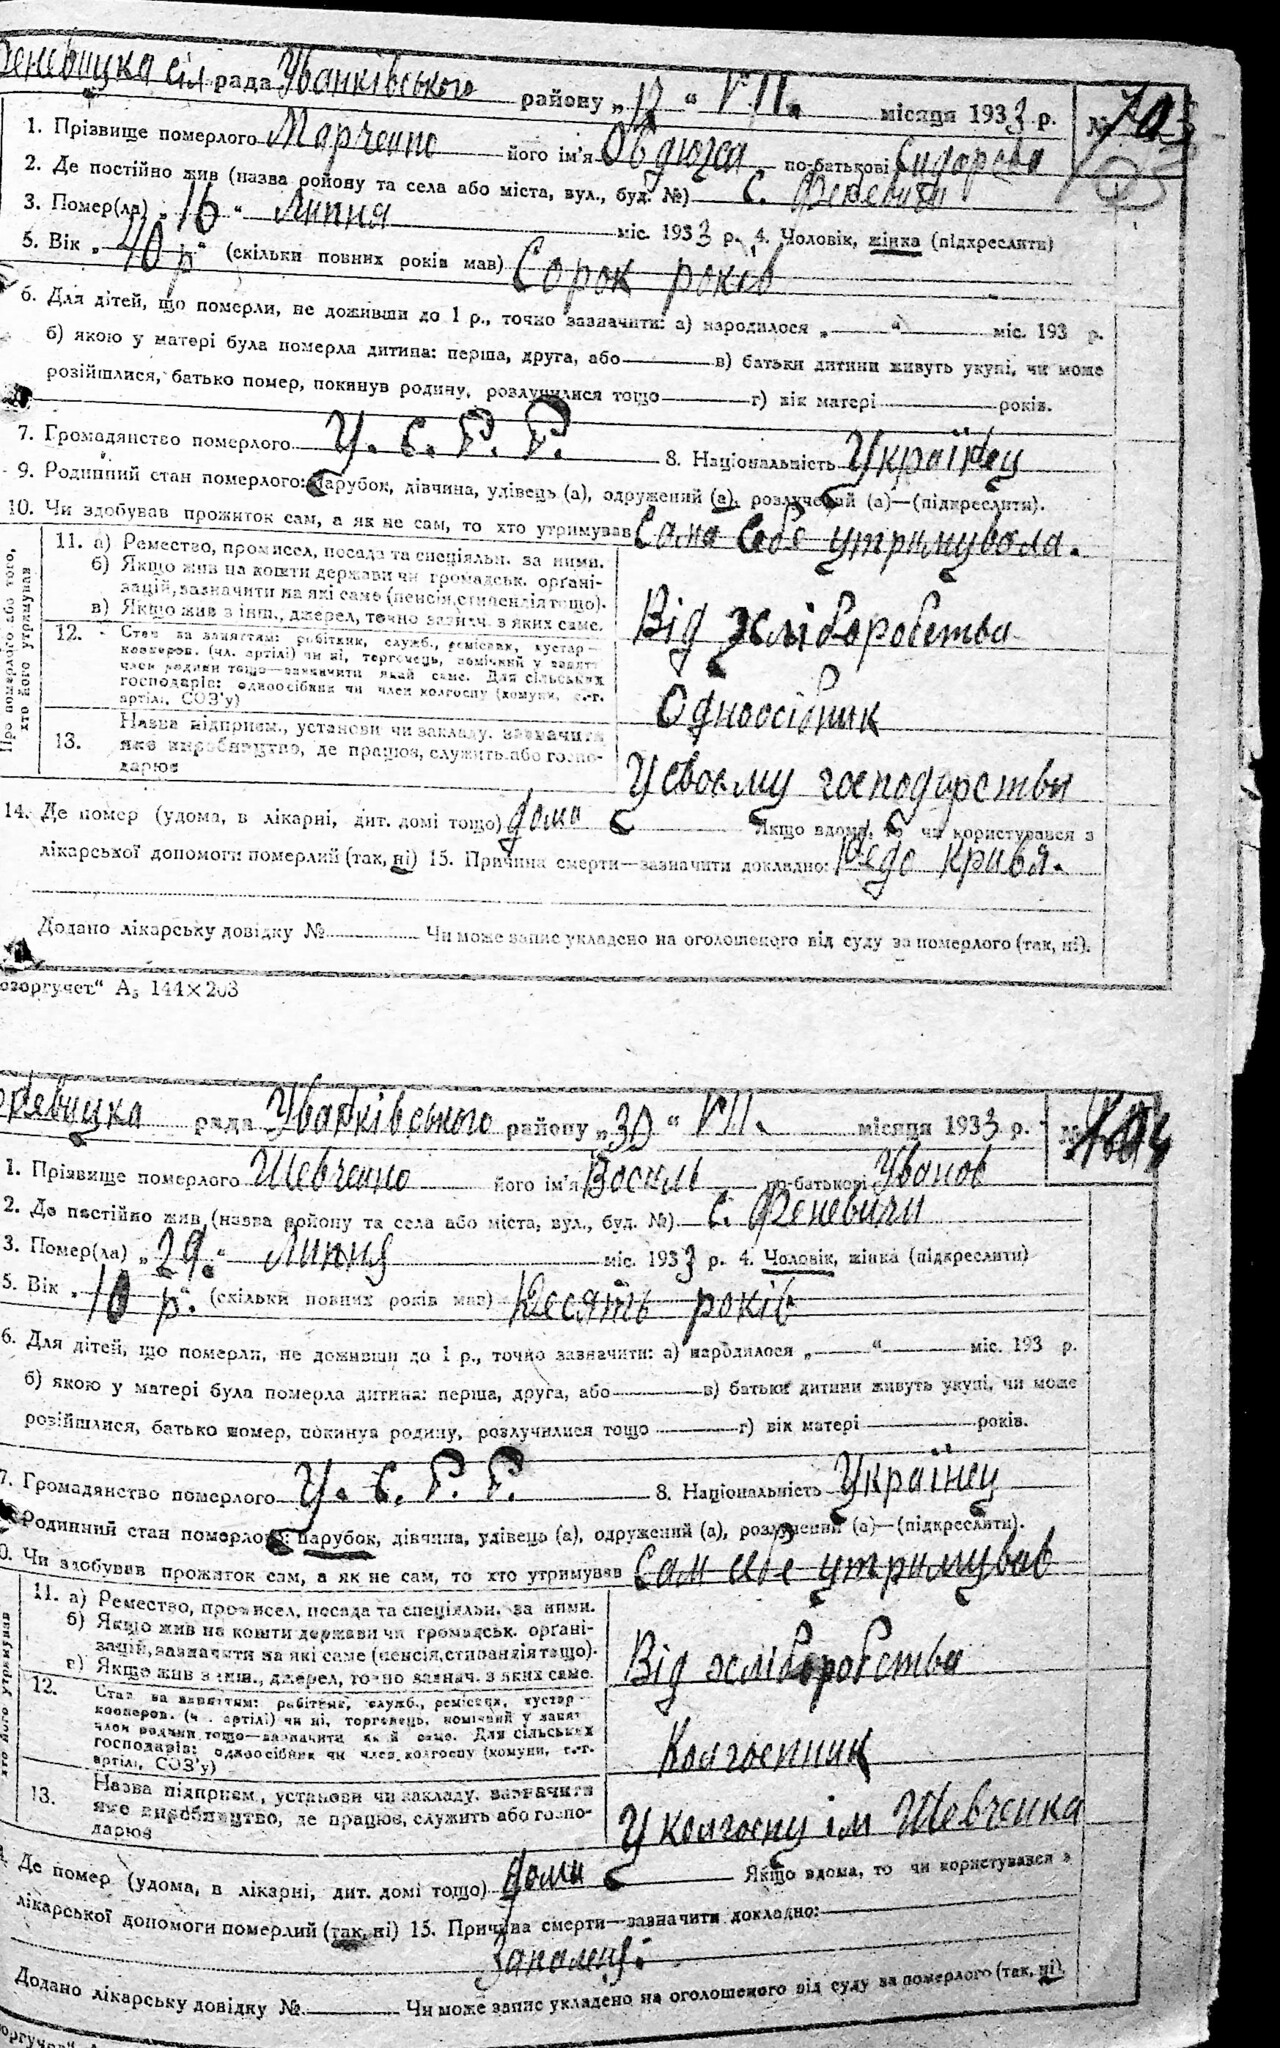 Феневицка сілрада Уванківського району „12“ VII. місяця 1933 р. № 703
1. Прізвище померлого Марченко його ім'я Овдюха по-батькові Сидорева
2. Де постійно жив (назва району та села або міста, вул., буд. №) С. Феневичи
3. Помер(ла) „16“ Липня міс. 1933 р. 4. Чоловік, жінка (підкреслити)
5. Вік „40 р“ (скільки повних років мав) Сорок років
6. Для дітей, що померли, не доживши до 1 р., точно зазначити: а) народилося „ “ міс. 193 р.
б) якою у матері була померла дитина: перша, друга, або в) батьки дитини живуть укупі, чи може
розійшлися, батько помер, покинув родину, розлучилися тощо г) вік матері років.
7. Громадянство померлого У. С. Р. Р. 8. Національність Українец
9. Родинний стан померлого: парубок, дівчина, удівець (а), одружений (а), розлучений (а)—(підкреслити).
10. Чи здобував прожиток сам, а як не сам, то хто утримував Сама себе утримувала.
Про померлого або того, хто його утримував
11. а) Ремество, промисел, посада та спеціяльн. за ними.
б) Якщо жив на кошти держави чи громадськ. орґані-
зацій, зазначити на які саме (пенсія, стипендія тощо).
в) Якщо жив з інш., джерел, точно зазнач. з яких саме.
Від хліборобства
12. Стан за заняттям: робітник, служб., ремісник, кустар—
кооперов. (чл. артілі) чи ні, торговець, помічний у занят.
член родини тощо—зазначити який саме. Для сільських
господарів: одноосібник чи член колгоспу (комуни, с.-г.
артілі, СОЗ'у)
Одноосібник
13. Назва підприєм., установи чи закладу, зазначити
яке виробництво, де працює, служить або госпо-
дарює
У своєму господарстви
14. Де помер (удома, в лікарні, дит. домі тощо) дома Якщо вдома, то чи користувався з
лікарської допомоги померлий (так, ні) 15. Причина смерти—зазначити докладно: кривя.
Додано лікарську довідку № Чи може запис укладено на оголошеного від суду за померлого (так, ні).
озоргучет." А₅ 144×203
рада Уванківського району „30“ VII. місяця 1933 р. № 704
1. Прізвище померлого Шевченко його ім'я Василь по-батькові Уванов
2. Де постійно жив (назва району та села або міста, вул., буд. №) С. Феневичи
3. Помер(ла) „29.“ Липня міс. 1933 р. 4. Чоловік, жінка (підкреслити)
5. Вік „10 р.“ (скільки повних років мав) Десять років
6. Для дітей, що померли, не доживши до 1 р., точно зазначити: а) народилося „ “ міс. 193 р.
б) якою у матері була померла дитина: перша, друга, або в) батьки дитини живуть укупі, чи може
розійшлися, батько помер, покинув родину, розлучилися тощо г) вік матері років.
7. Громадянство померлого У. С. Р. Р. 8. Національність Українец
Родинний стан померлого: парубок, дівчина, удівець (а), одружений (а), розлучений (а)—(підкреслити).
0. Чи здобував прожиток сам, а як не сам, то хто утримував Сам себе утримував
хто його утримував
11. а) Ремество, промисел, посада та спеціяльн. за ними.
б) Якщо жив на кошти держави чи громадськ. орґані-
зацій, зазначити на які саме (пенсія, стипендія тощо).
в) Якщо жив з інш., джерел, точно зазнач. з яких саме.
Від хліборобства
12. Стан за заняттям: робітник, служб., ремісник, кустар—
кооперов. (чл. артілі) чи ні, торговець, помічний у занят.
член родини тощо—зазначити який саме. Для сільських
господарів: одноосібник чи член колгоспу (комуни, с.-г.
артілі, СОЗ'у)
Колгоспник
13. Назва підприєм., установи чи закладу, зазначити
яке виробництво, де працює, служить або госпо-
дарює
У колгоспу ім Шевченка
Де помер (удома, в лікарні, дит. домі тощо) дома Якщо вдома, то чи користувався з
лікарської допомоги померлий (так, ні) 15. Причина смерти—зазначити докладно:
Запалеція
Додано лікарську довідку № Чи може запис укладено на оголошеного від суду за померлого (так, ні).